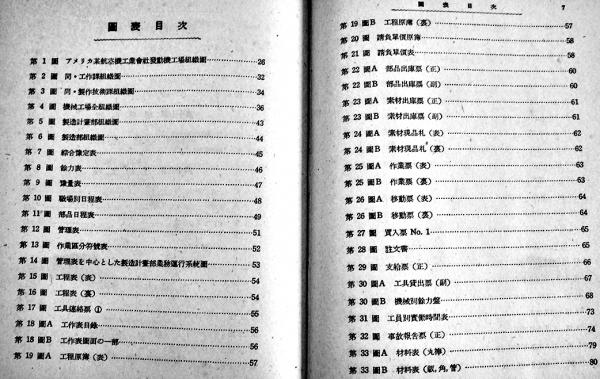 圖表目次
第1圖 アメリカ某航空機工業會社發動機工場組織圖 26
第2圖 同・工作課組織圖 32
第3圖 同・製作技術課組織圖 34
第4圖 機械工場全組織圖 36
第5圖 製造計畫部組織圖 43
第6圖 製造部組織圖 44
第7圖 綜合豫定表 45
第8圖 餘力表 46
第9圖 豫量表 47
第10圖 職場別日程表 48
第11圖 部品日程表 49
第12圖 管理表 51
第13圖 作業區分符號表 52
第14圖 管理表を中心とした製造計畫部業務運行系統圖 53
第15圖 工程表(表) 54
第16圖 工程表(裏) 54
第17圖 工具連絡票① 55
第18圖A 工作表目錄 56
第18圖B 工作表圖面の一部 56
第19圖A 工程原簿(表) 57
圖表目次 7
第19圖B 工程原簿(裏) 57
第20圖 請負單價原簿 58
第21圖 請負單價表 58
第22圖A 部品出庫票(正) 60
第22圖B 部品出庫票(副) 60
第23圖A 素材出庫票(正) 61
第23圖B 素材出庫票(副) 61
第24圖A 素材現品札(表) 62
第24圖B 素材現品札(裏) 62
第25圖A 作業票(表) 63
第25圖B 作業票(裏) 63
第26圖A 移動票(表) 64
第26圖B 移動票(裏) 64
第27圖 買入票 No. 1 65
第28圖 註文書 65
第29圖 支給票(正) 66
第30圖A 工具貸出票(副) 67
第30圖B 機械別餘力盤 68
第31圖 工員別實働時間表 73
第32圖 事故報告票(正) 74
第33圖A 材料表(丸棒) 79
第33圖B 材料表(板,角,管) 80